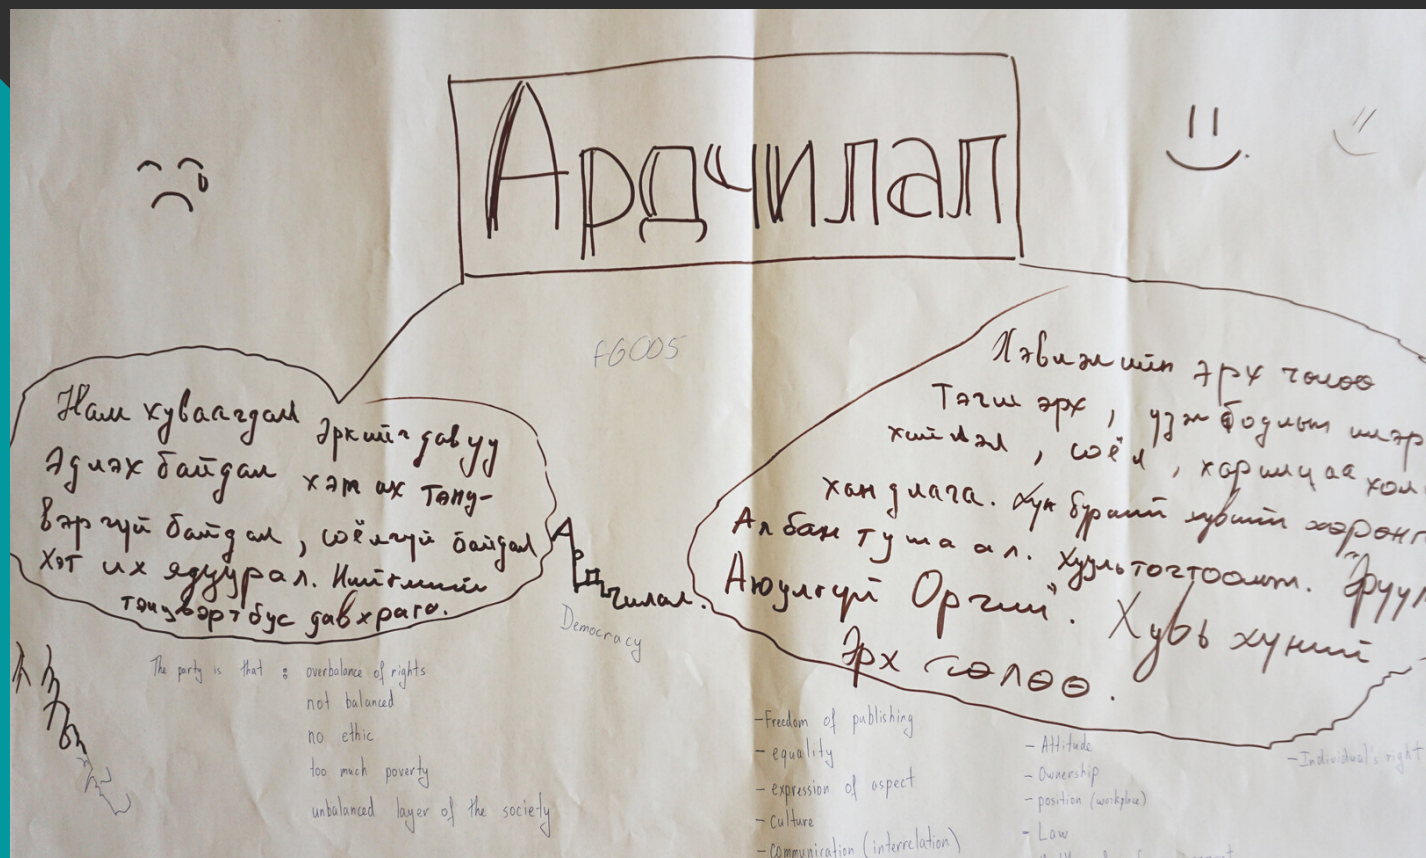 Ардчилал
FGC05
Нам хуваагдал эрхийг давуу
Эдлэх байдал хэт их тэнц-
вэргүй байдал, соёлгүй байдал
хэт их ядуурал. Нийгмийн
тэнцвэртбус давхрага.
Ардчилал.
Democracy
Хэвлэлийн эрх чөлөө
Тэгш эрх, үзэл бодлын илэр
хийлэл, соёл, харилцаа хол
хандлага. Хүн бүрийн хувийн хөрөнг
Албан тушаал. Хуультогтоомж. "Эрүүл
Аюулгүй Орчин". Хувь хүний
Эрх чөлөө.
The party is that : overbalance of rights
not balanced
no ethic
too much poverty
unbalanced layer of the society
-Freedom of publishing
-equality
-expression of aspect
-culture
-communication (interrelation)
-Attitude
-Ownership
-position (workplace)
-Law
-Individual's right